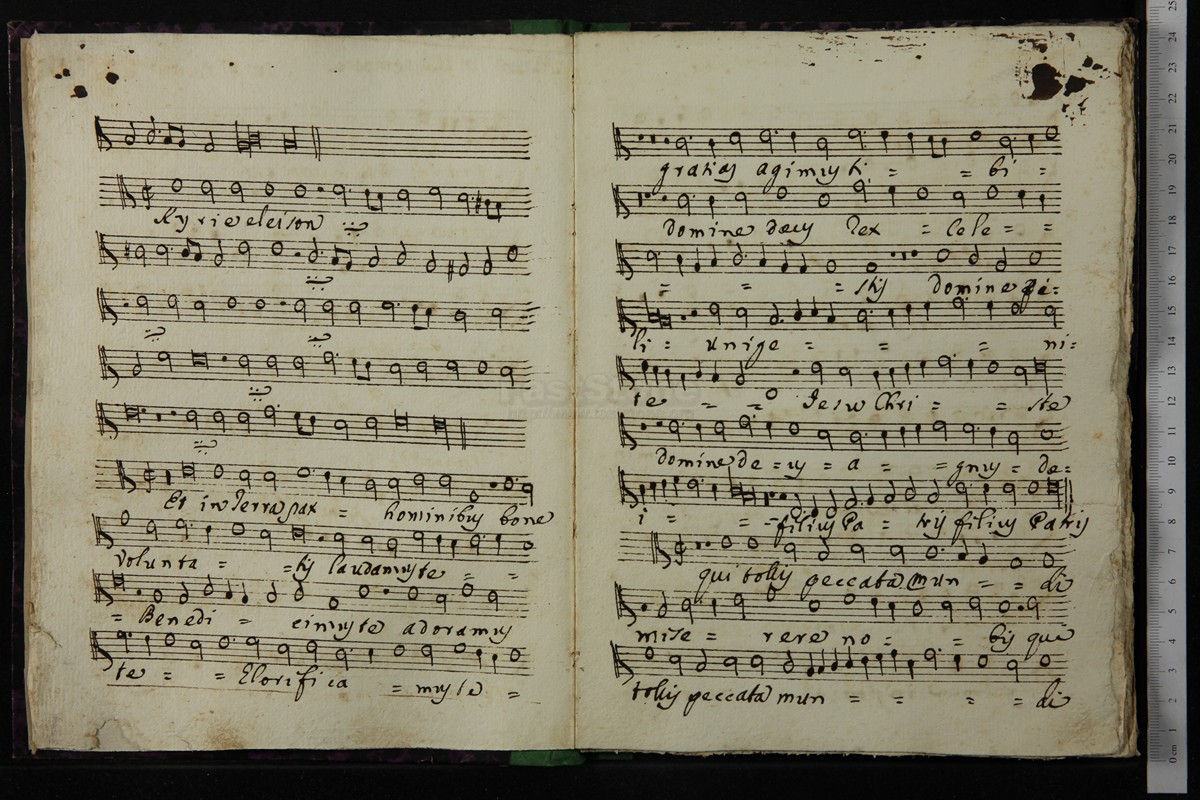 Kyrie eleison
Et in terra pax = hominibus bone
volunta = = tis laudamus te = =
= Benedi = cimus te adoramus
te = = Glorifica = mus te =
gratias agimus ti = = bi =
domine deus Rex = Cele = =
= = = stis domine fi =
li = unige = = = ni =
te = = Jesu Chri = = ste
domine de = us = a = = gnus = de =
i = = = filius Pa = tris filius Patris
qui tollis peccata mun = = di
mise = rere no = = bis qui
tollis peccata mun = = = = di